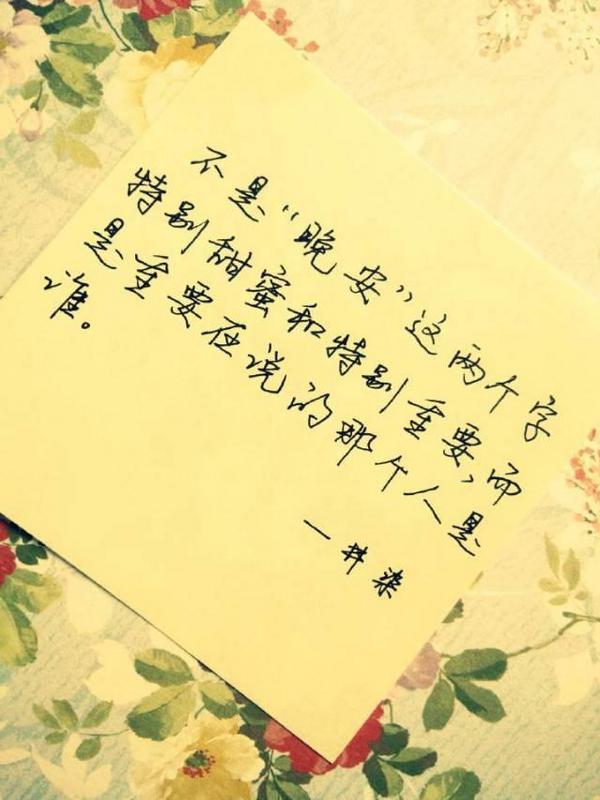 不是“晚安”这两个字
特别甜蜜和特别重要,而
是重要在说的那个人是
谁。
一井染